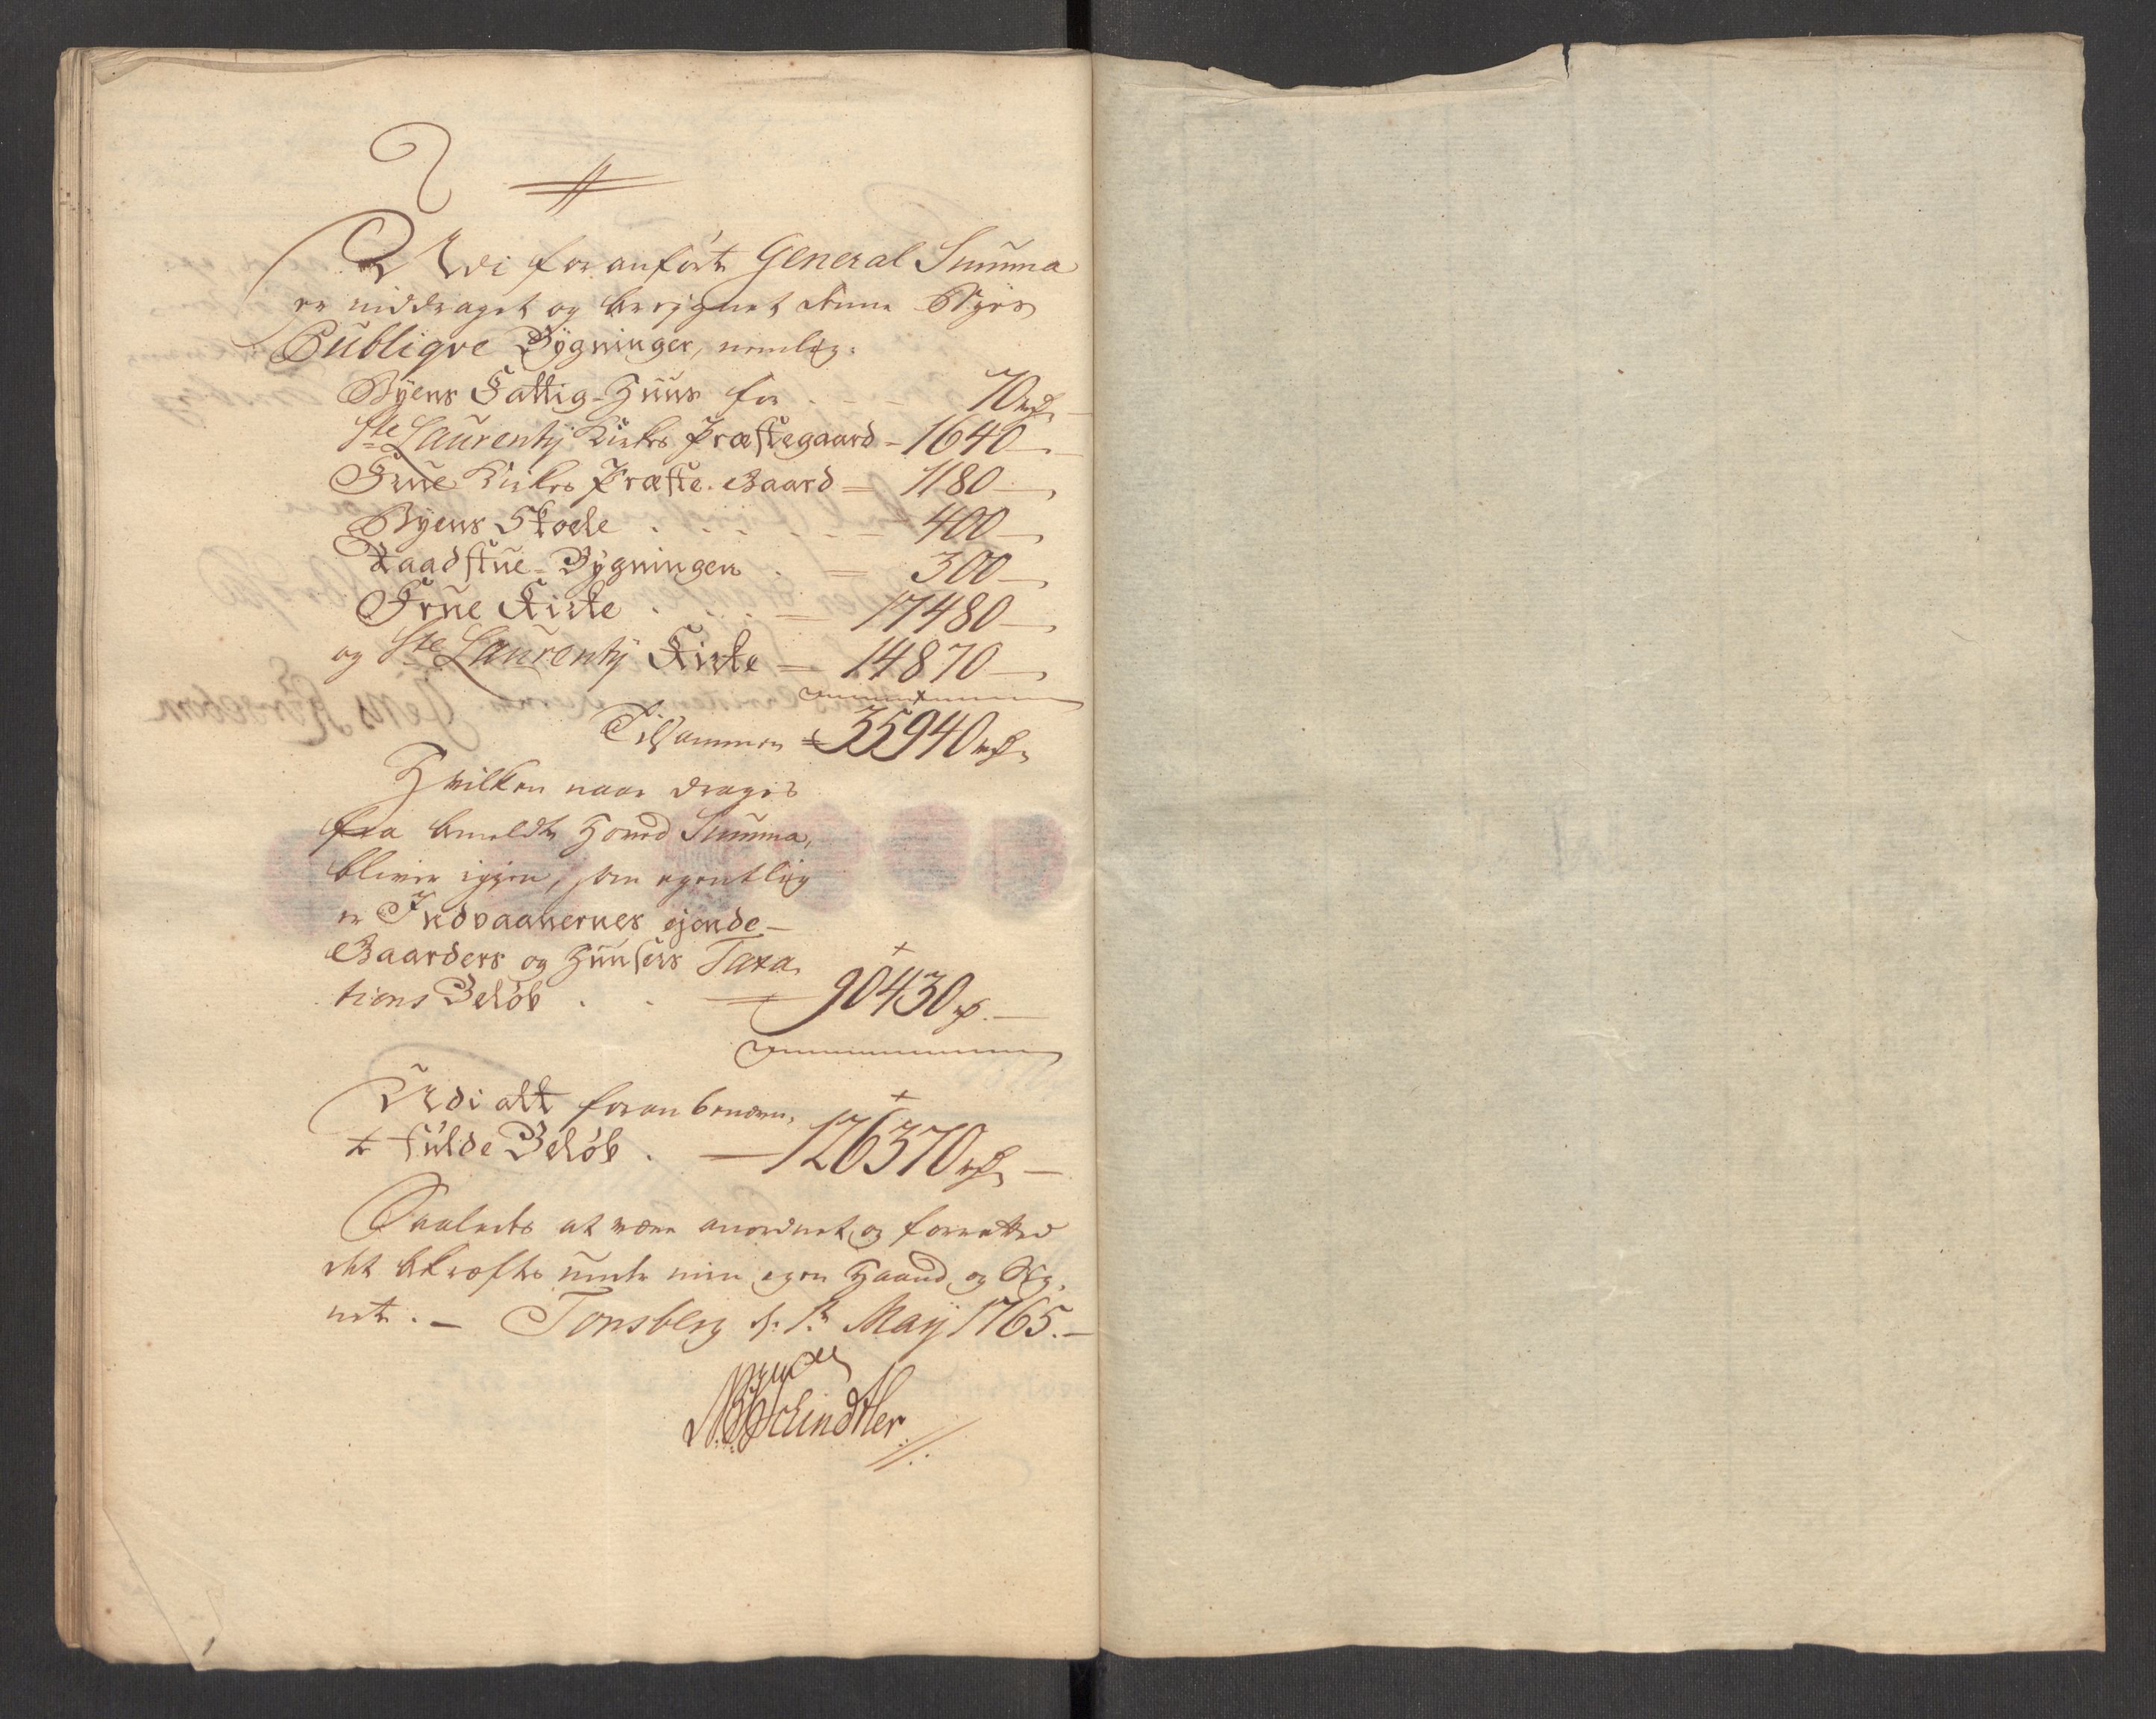 Udi foranførte General Summa
er inddraget og beregnet denne Byes
Publiqve Bÿgninger, nemlig:
Bÿens Fattig-Huus for . - - 70 rd
Ste Laurentij Kirkes Præstegaard - 1640 -
Frue Kirkes Præste-Gaard = 1180 -
Bÿens Skoele . . . . . = 400 -
Raadstue-Bÿgningen . = 300 -
Frue Kirke . . . = 17480 -
og Ste Laurentij Kirke = 14870 -
Tilsammen = 35940 rd
Hvilken naar drages
fra bemeldte Hoved Summa,
bliver igien, som egentlig
er Indvaanernes ejende
Gaarders og Huusers Taxa-
tions Beløb . . = 90430 rd. -
Udi alt foranbenævn-
te fulde Beløb . - 126370 rd -
Saaledes at være anordnet og forrettet
det bekræftes under min egen Haand og Sig-
nete. - Tonsberg d: 1te Maij 1765. -
Schindtler